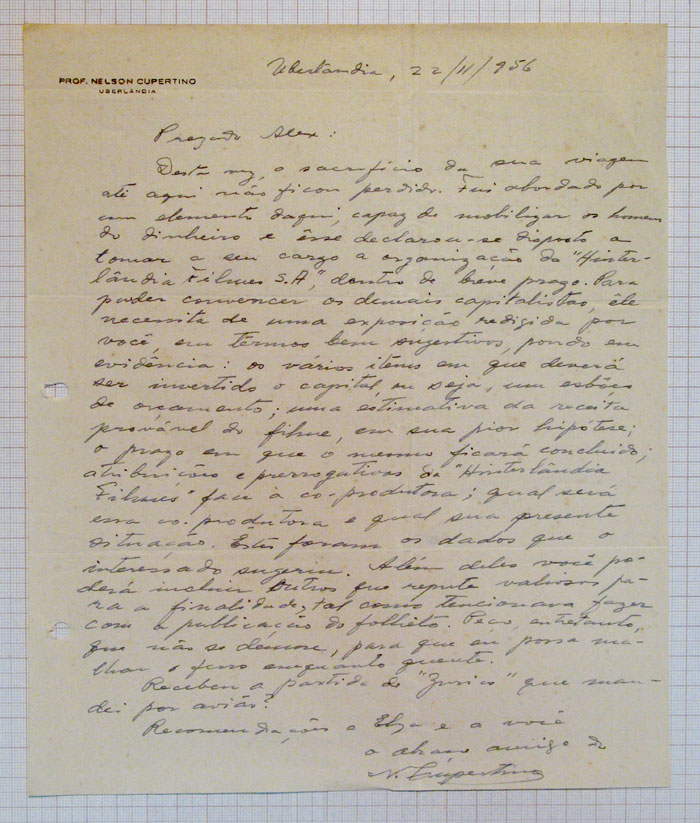 PROF. NELSON CUPERTINO
UBERLÂNDIA
Uberlandia, 22/11/956
Prezado Alex:
Desta vez, o sacrifício da sua viagem
até aqui não ficou perdido. Fui abordado por
um elemento daqui, capaz de mobilizar os homens
do dinheiro e êsse declarou-se disposto a
tomar a seu cargo a organização da "Hinter-
lândia Filmes S.A", dentro de breve prazo. Para
poder convencer os demais capitalistas, ele
necessita de uma exposição redigida por
você, em termos bem sugestivos, pondo em
evidência: os vários ítens em que deverá
ser invertido o capital, ou seja, um esbôço
de orçamento; uma estimativa da receita
provável do filme, em sua pior hipótese;
o prazo em que o mesmo ficará concluido;
atribuições e prerrogativas da "Hinterlândia
Filmes" face a co-produtora; qual será
essa co-produtora e qual sua presente
situação. Êstes foram os dados que o
interessado sugeriu. Além deles você po-
derá incluir outros que repute valiosos pa-
ra a finalidade, tal como tencionava fazer
com a publicação do folhêto. Peço, entretanto,
que não se demore, para que eu possa ma-
lhar o ferro enquanto quente.
Recebeu a partida de que man-
dei por avião?
Recomendações a Elza e a você
o abraço amigo do
N. Cupertino